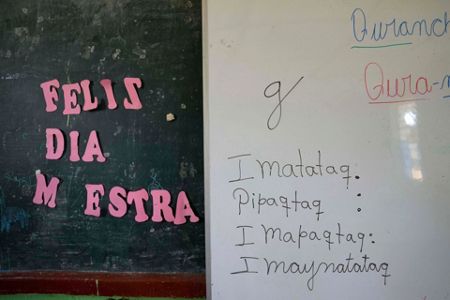 FELIZ
DIA
M ESTRA
Quranch
Qura-
g
Imatataq:
Pipaqtaq :
Imapaqtaq:
Imaynatataq